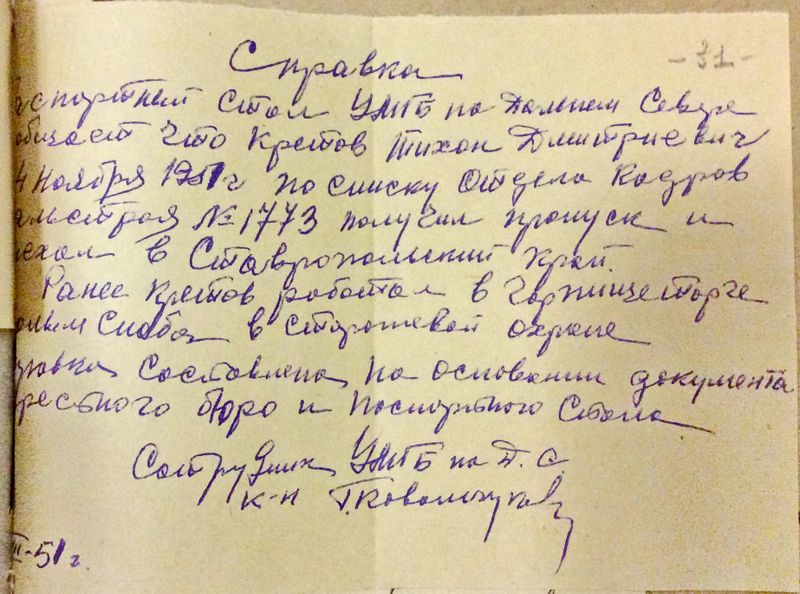 Справка
- 31 -
спортный Стол УМГБ на Дальнем Севере
общает что Кретов Тихон Дмитриевич
4 ноября 1951 г по списку Отдела Кадров
альстроя № 1773 получил пропуск и
ехал в Ставропольский Край.
Ранее Кретов работал в
Снаба в сторожевой охране
равка составлена на основании документа
ресного бюро и паспортного Стола
Сотрудник УМГБ на Д. С.
к-н
-51 г.